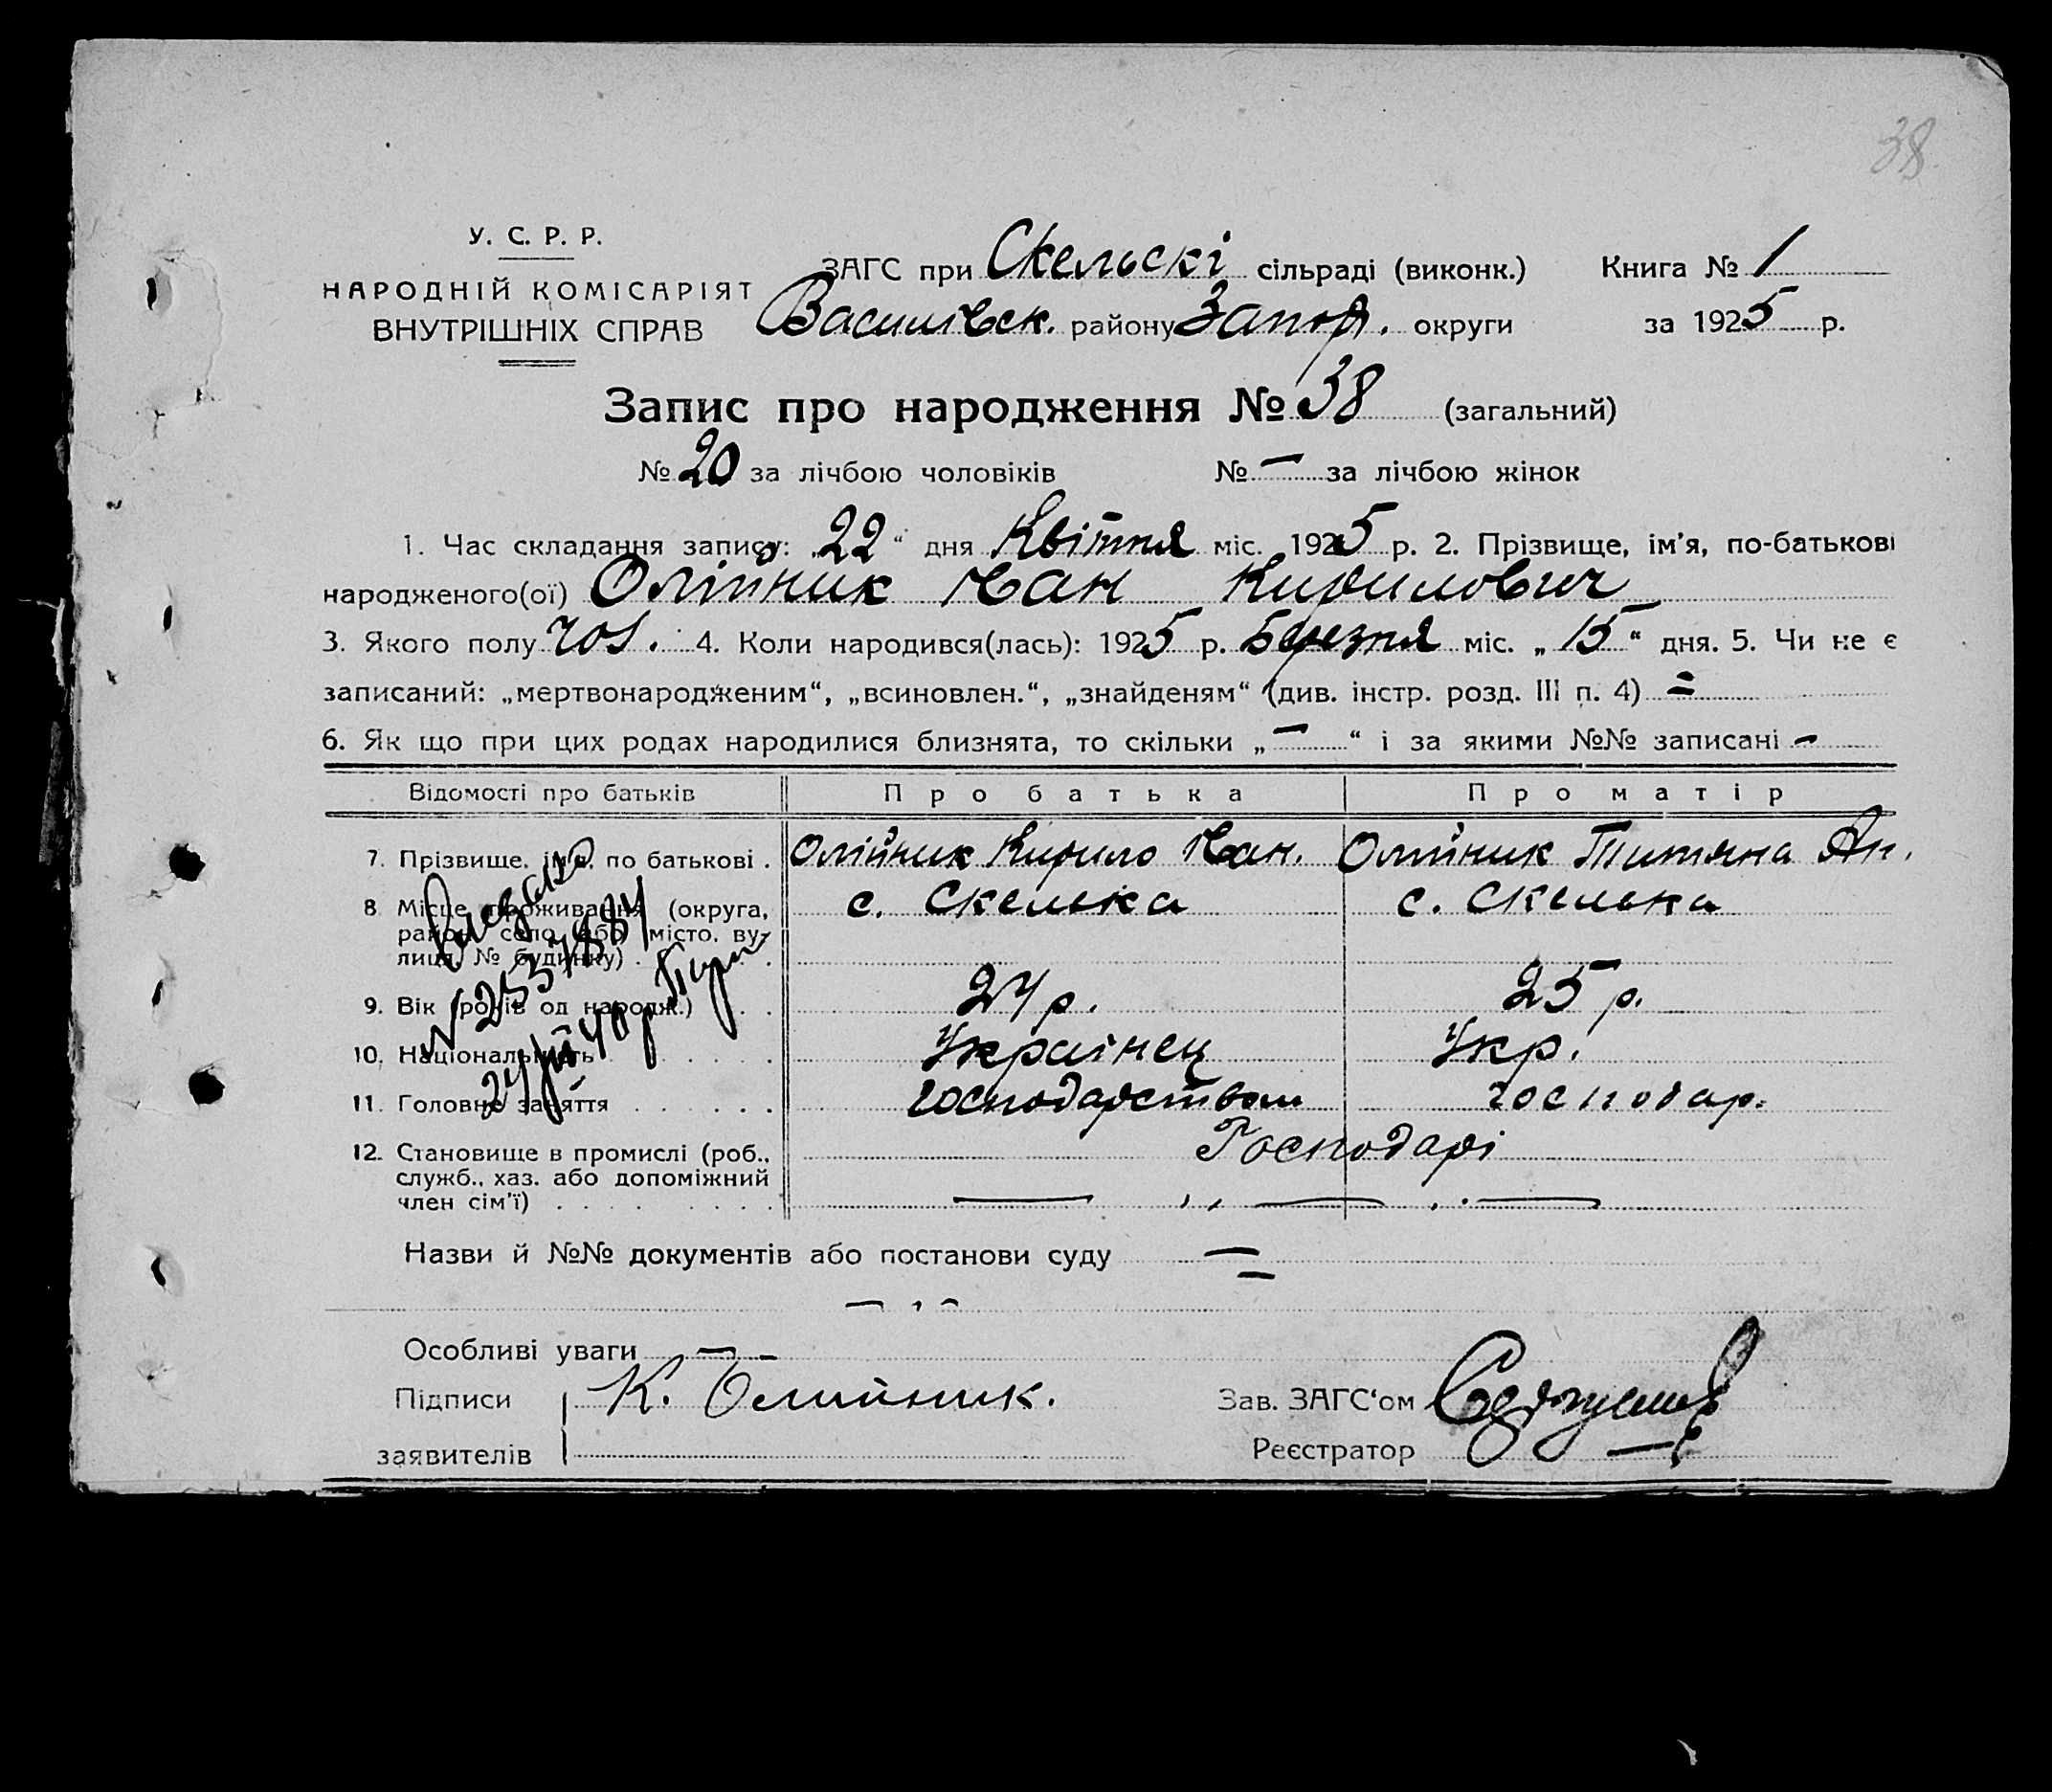 38
У. С. Р. Р.
НАРОДНІЙ КОМІСАРІЯТ
ВНУТРІШНІХ СПРАВ
ЗАГС при Скельскі сільраді (виконк.) Книга № 1
Василівск. району Запор. округи за 1925 р.
Запис про народження № 38 (загальний)
№ 20 за лічбою чоловіків № — за лічбою жінок
1. Час складання запису: „22“ дня Квітня міс. 1925 р. 2. Прізвище, ім'я, по-батькові
народженого(ої) Олійник Іван Кирилович
3. Якого полу чол. 4. Коли народився(лась): 1925 р. Березня міс. „15“ дня. 5. Чи не є
записаний: „мертвонародженим“, „всиновлен.“, „знайденям“ (див. інстр. розд. III п. 4) =
6. Як що при цих родах народилися близнята, то скільки „—“ і за якими №№ записані —
Відомості про батьків Про батька Про матір
7. Прізвище, ім'я, по батькові . Олійник Кирило Іван. Олійник Титяна Ан.
8 Місце проживання (округа, с. Скелька с. Скелька
район, село або місто, ву-
лиця, № будинку) .
9. Вік (років од народж.) . . 24 р. 25 р.
10. Національність . . . . Украінец Укр.
11. Головне заняття . . . . . . господарством господар.
12. Становище в промислі (роб., Господарі
служб., хаз. або допоміжний
член сім'ї) . . . . . . . . — ,, — ,, —
Назви й №№ документів або постанови суду —
Особливі уваги —
Підписи К. Олийник. Зав. ЗАГС'ом
заявителів Реєстратор —